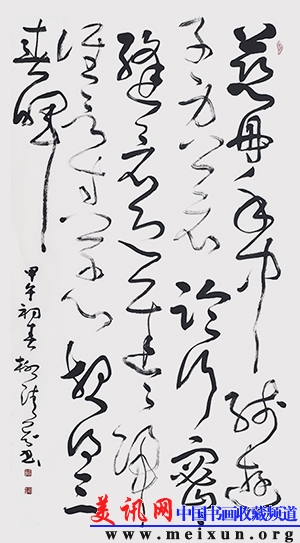 慈母手中线遊
子身上衣临行密々
缝意恐迟々归
谁言寸草心报得三
春晖
甲午初春
美讯网 中国书画收藏频道
www.meixun.org